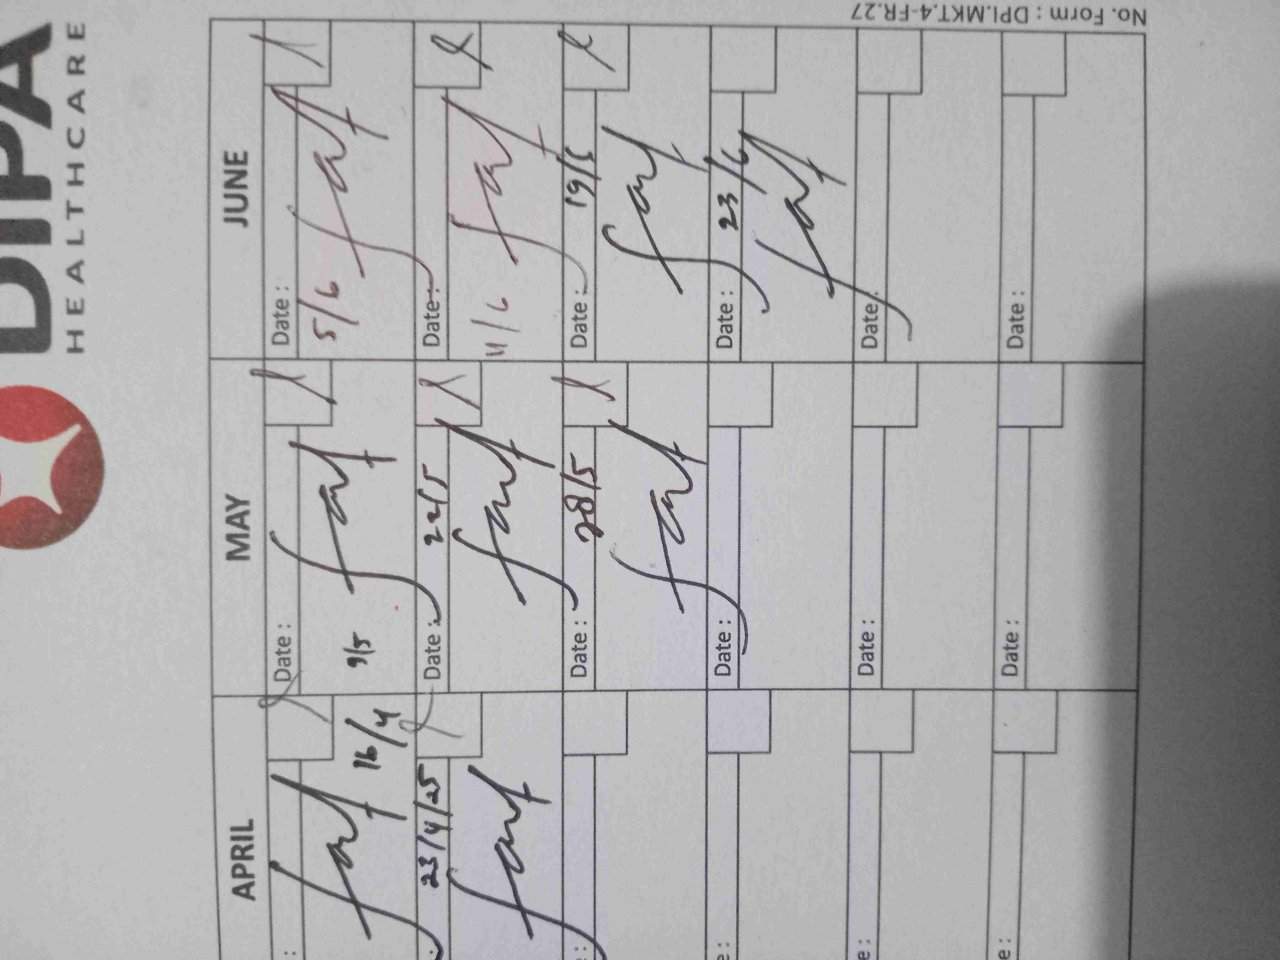 DIPA
HEALTHCARE
No. Form : DPI.MKT.4-FR.27
APRIL
MAY
JUNE
:
Date :
Date :
16/4
9/5
5/6
e :
Date :
Date :
23/4/25
22/5
11/6
e :
Date :
Date :
28/5
19/5
e :
Date :
Date :
23/6
e :
Date :
Date :
e :
Date :
Date :